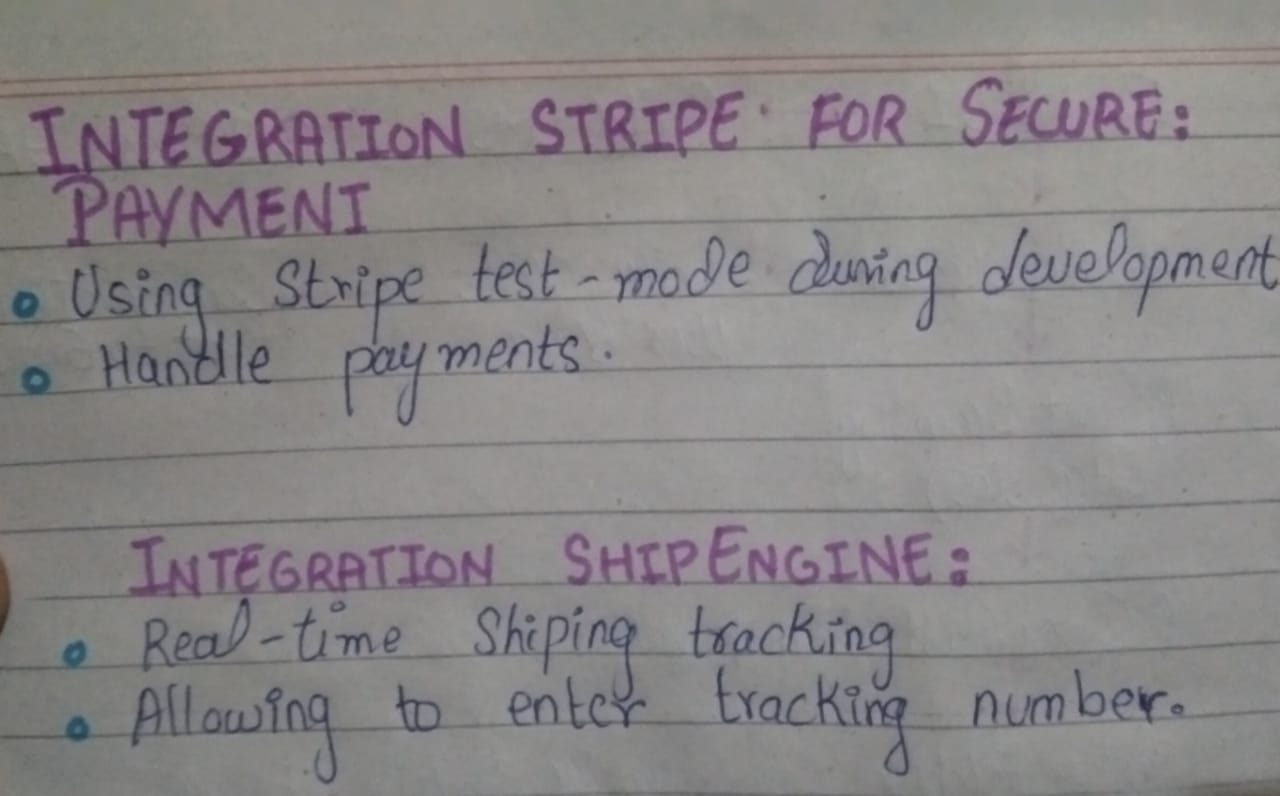 INTEGRATION STRIPE FOR SECURE:
PAYMENT
• Using Stripe test-mode during development
• Handle payments.
INTEGRATION SHIPENGINE:
• Real-time Shiping tracking
• Allowing to enter tracking number.